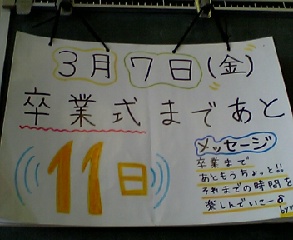 3月7日(金)
卒業式まであと
11日
メッセージ
卒業まで
あともうちょっと!!
それまでの時間を
楽しんでいこーよ
by